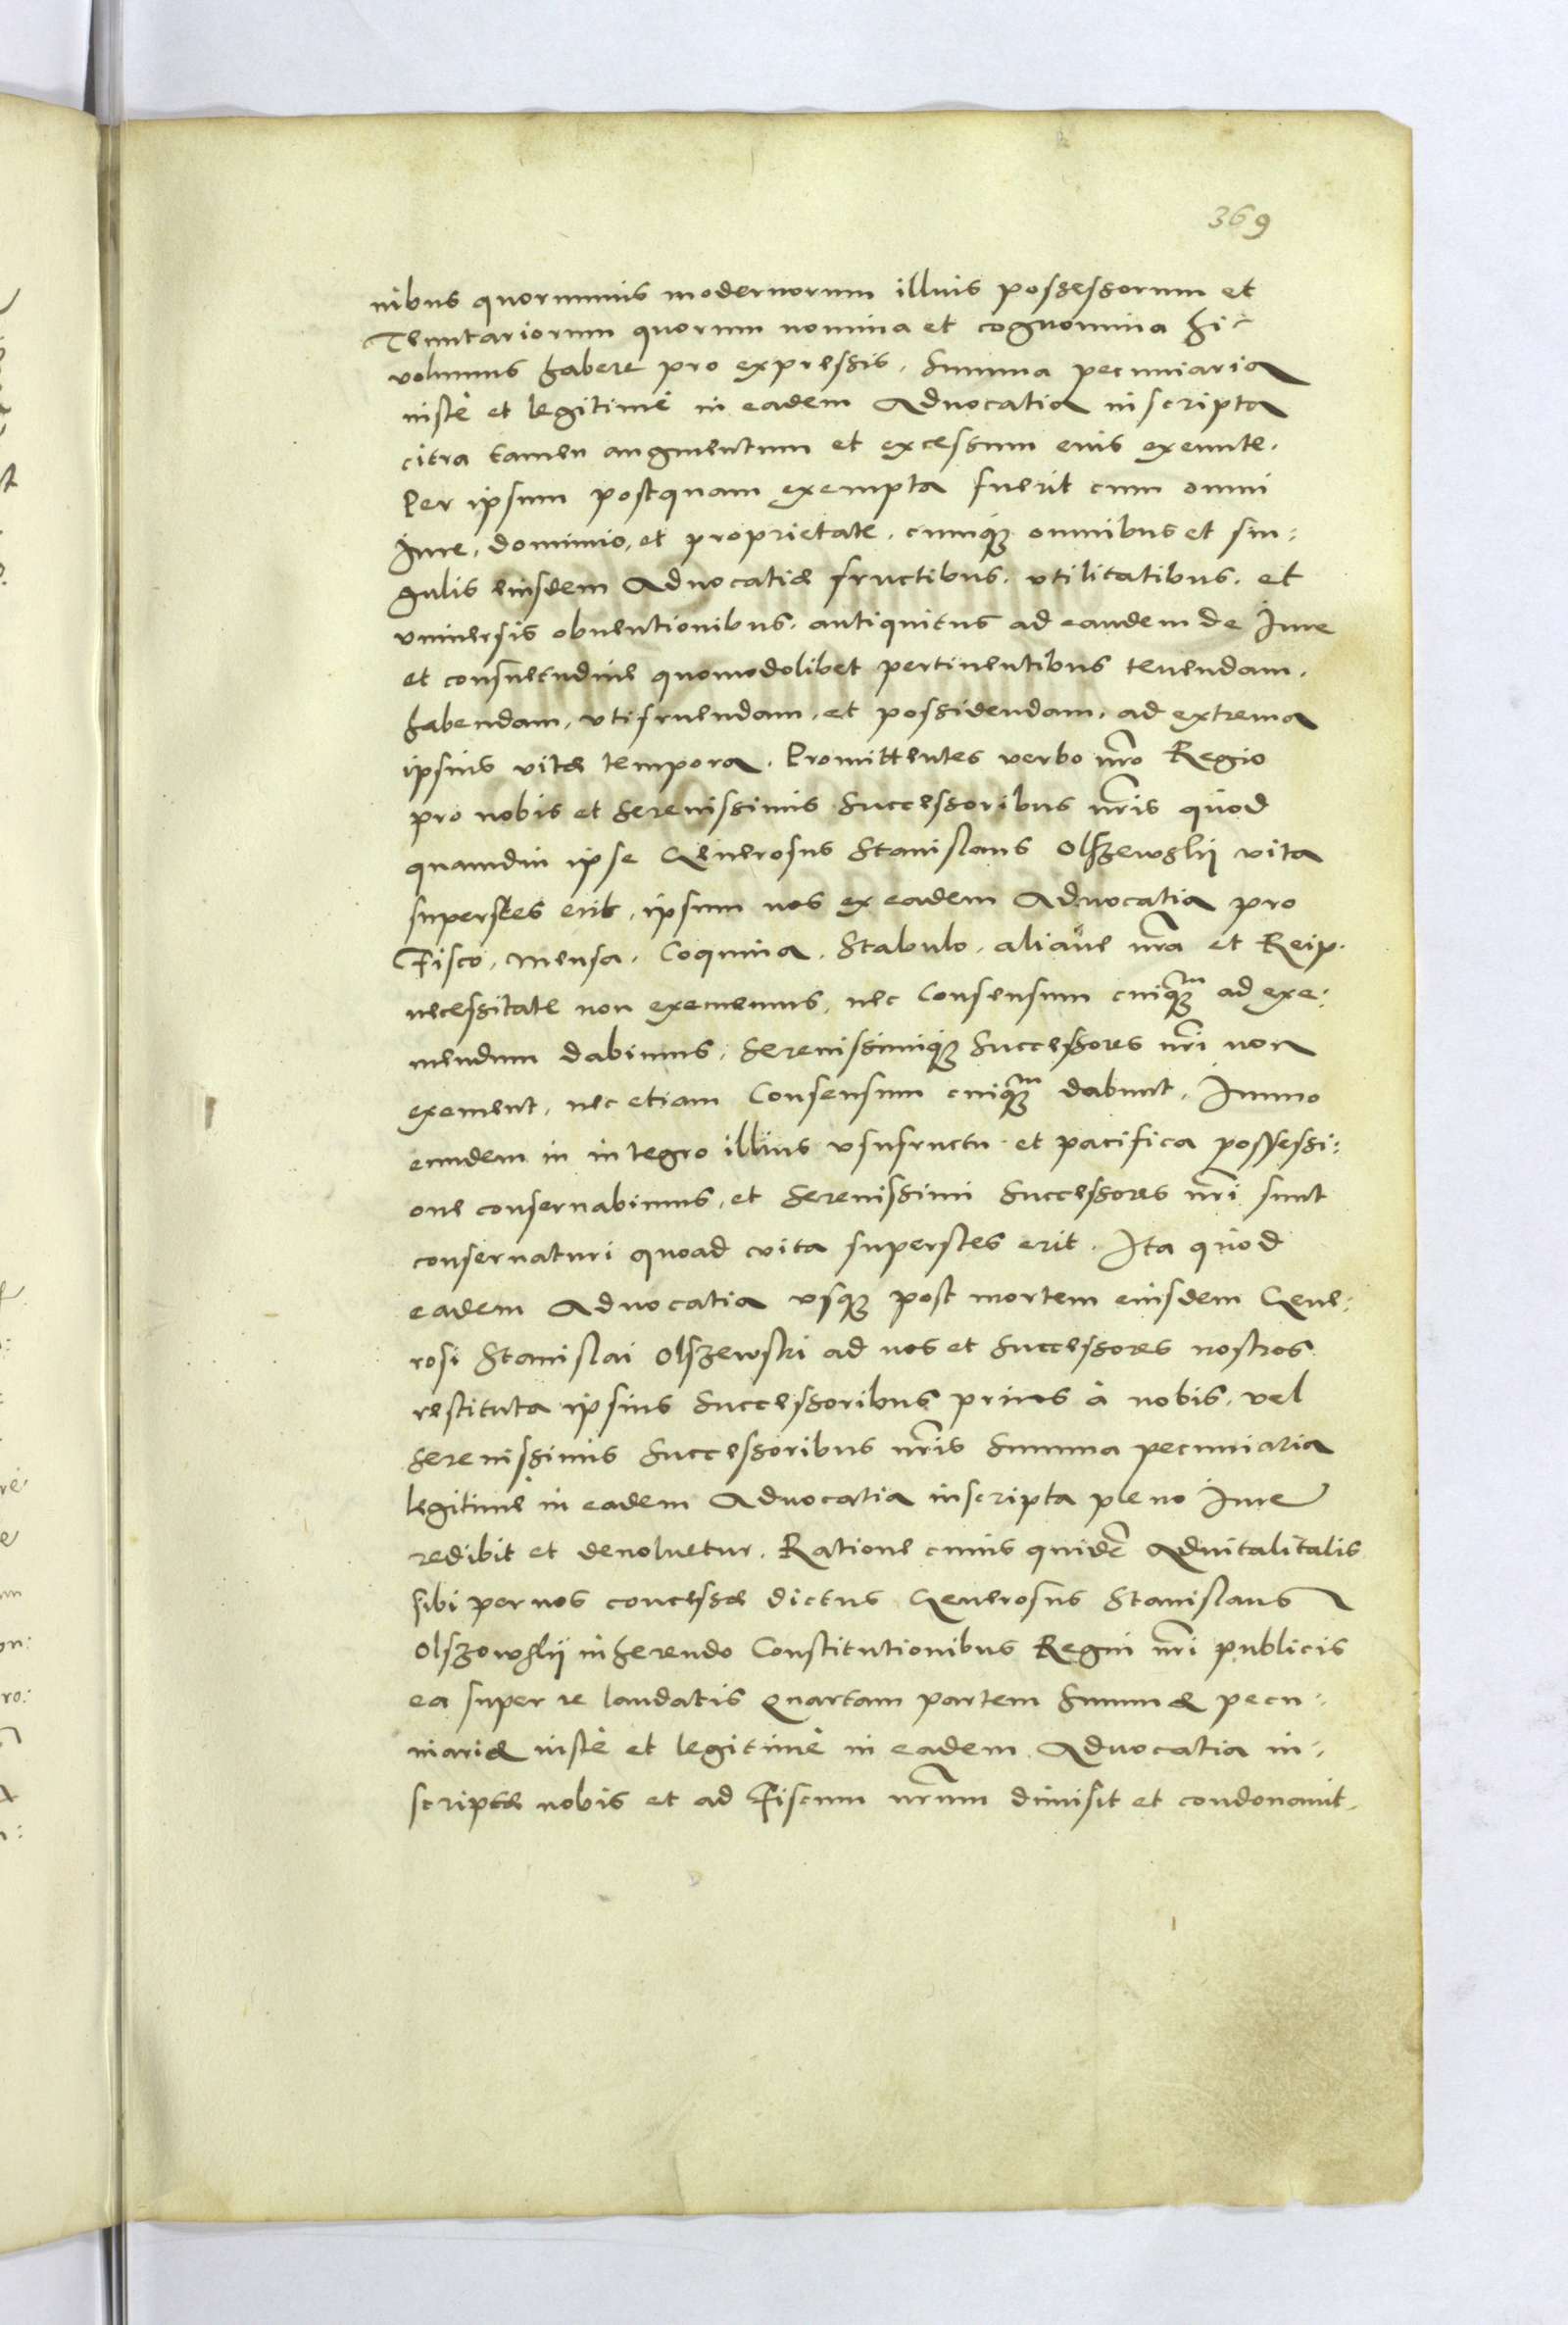 369
nibus quorumuis modernorum illius possessorum et
Tenutariorum quorum nomina et cognomina hic
volumus habere pro expressis, Summa pecuniaria
iustè et legitimè in eadem Aduocatia inscripta
citra tamen augmentum et excessum eius exeunte.
Per ipsum postquam exempta fuerit cum omni
Iure, dominio, et proprietate, cumq₃ omnibus et sin:
gulis eiusdem Aduocatiæ fructibus, vtilitatibus, et
vniuersis obuentionibus, antiquitus ad eandem de Iure
et consuetudine quomodolibet pertinentibus tenendam,
habendam, vtifruendam, et possidendam, ad extrema
ipsius vitæ tempora. Promittentes verbo nr̃o Regio
pro nobis et Serenissimis Successoribus nr̃is quod
quamdiu ipse Generosus Stanislaus Olszewskij vita
superstes erit, ipsum nos ex eadem Aduocatia pro
Fisco, Mensa, Coquina, Stabulo, aliaue nr̃a et Reip.
necessitate non exememus, nec Consensum cuiq₃m ad exe:
mendum dabimus, Serenissimiq₃ Successores nr̃i non
exement, nec etiam Consensum cuiq₃m dabunt, Immo
eundem in integro illius vsufructu et pacifica possessi:
one conseruabimus, et Serenissimi Successores nr̃i sunt
conseruaturi quoad vita superstes erit. Ita quod
eadem Aduocatia vsq₃ post mortem eiusdem Gene:
rosi Stanislai Olszewski ad nos et Successores nostros
restituta ipsius Successoribus prius à nobis, vel
Serenissimis Successoribus nr̃is Summa pecuniaria
legitimè in eadem Aduocatia inscripta pleno Iure
redibit et deuoluetur. Ratione cuius quidẽ Aduitalitalis
sibi per nos concessæ dictus Generosus Stanislaus
Olszowskij inherendo Constitutionibus Regni nr̃i publicis
ea super re laudatis Quartam partem Summæ pecu:
niariæ iustè et legitimè in eadem Aduocatia in:
scriptæ nobis et ad Fiscum nr̃um dimisit et condonauit.